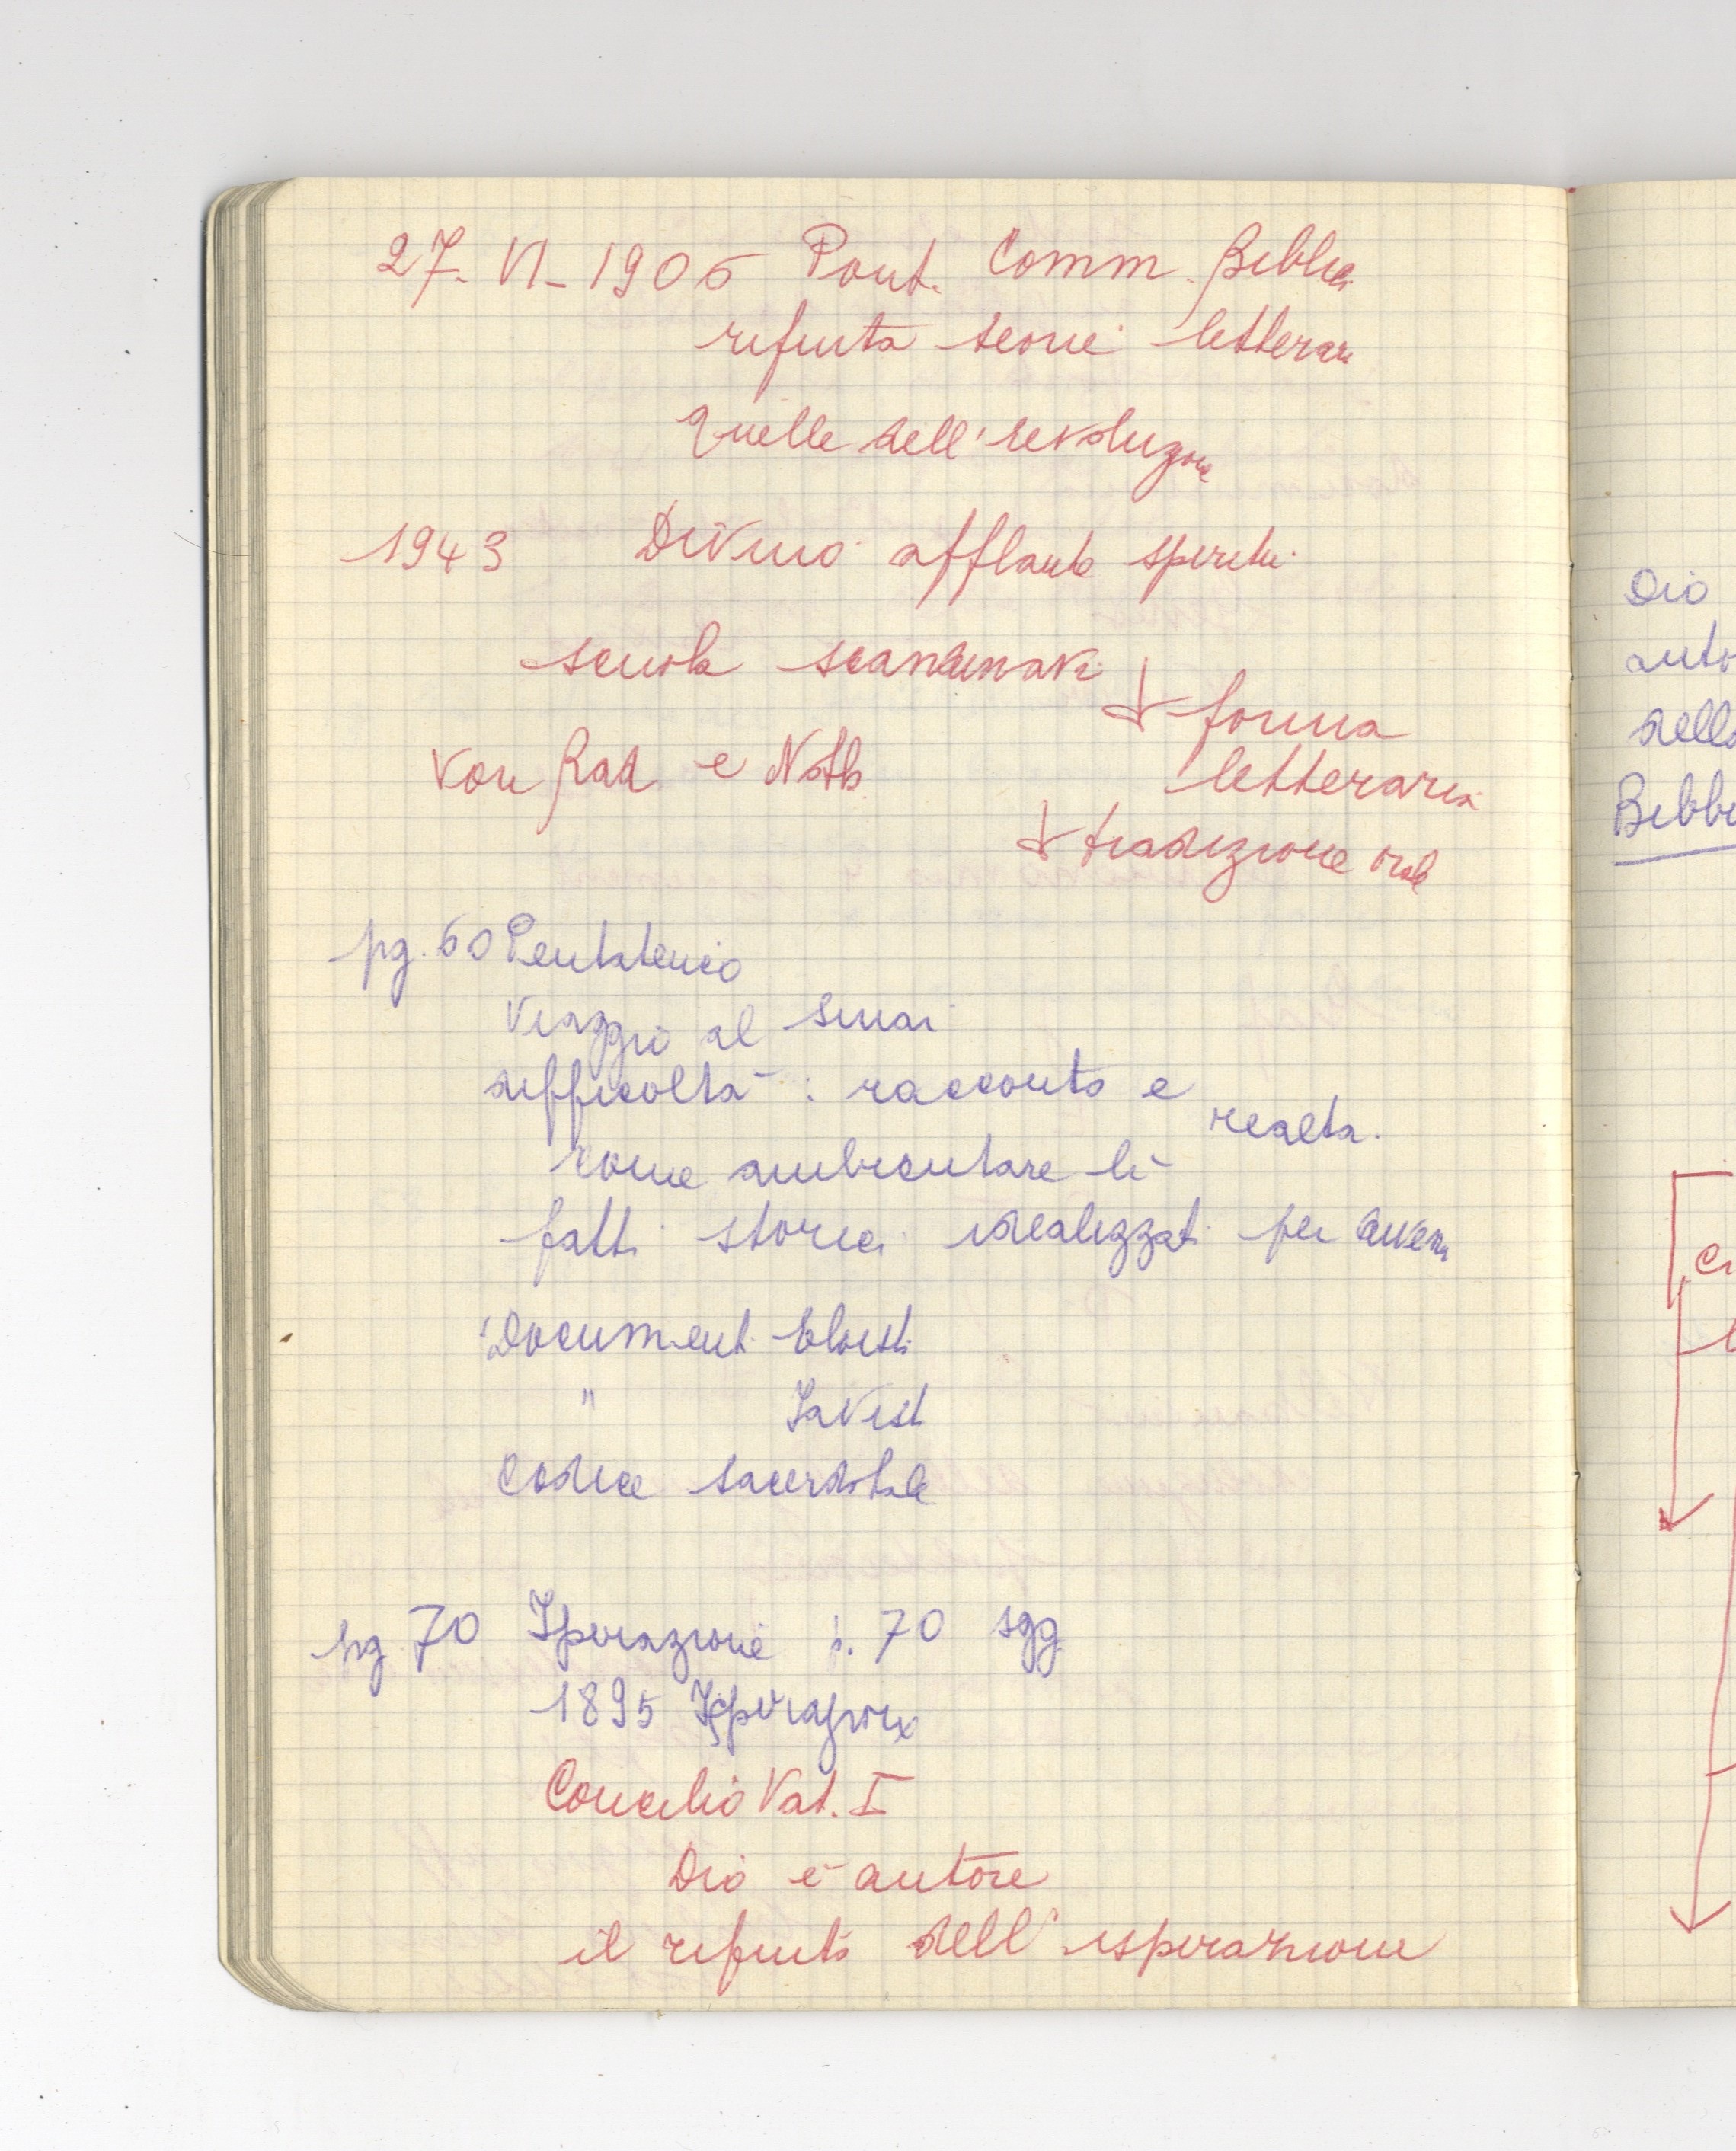 27-VI-1906 Pont. Comm. Biblica
rifiuta teorie letterarie
quelle dell'evoluzione
1943 Divino afflante spiritu
scuola scandinava
↓ forma
Von Rad e Noth
letteraria
↓ tradizione orale
pg. 60 Pentateuco
Viaggio al Sinai
difficoltà: racconto e
realtà.
come ambientare lì
fatti storici idealizzati per
Documenti Eloisti
" Javist
Codice sacerdotale
pg 70 Ispirazione 70 sgg
1895 Ispirazione
Concilio Vat. I
Dio è autore
il rifiuto dell'ispirazione
Dio
auto
della
Bibbi